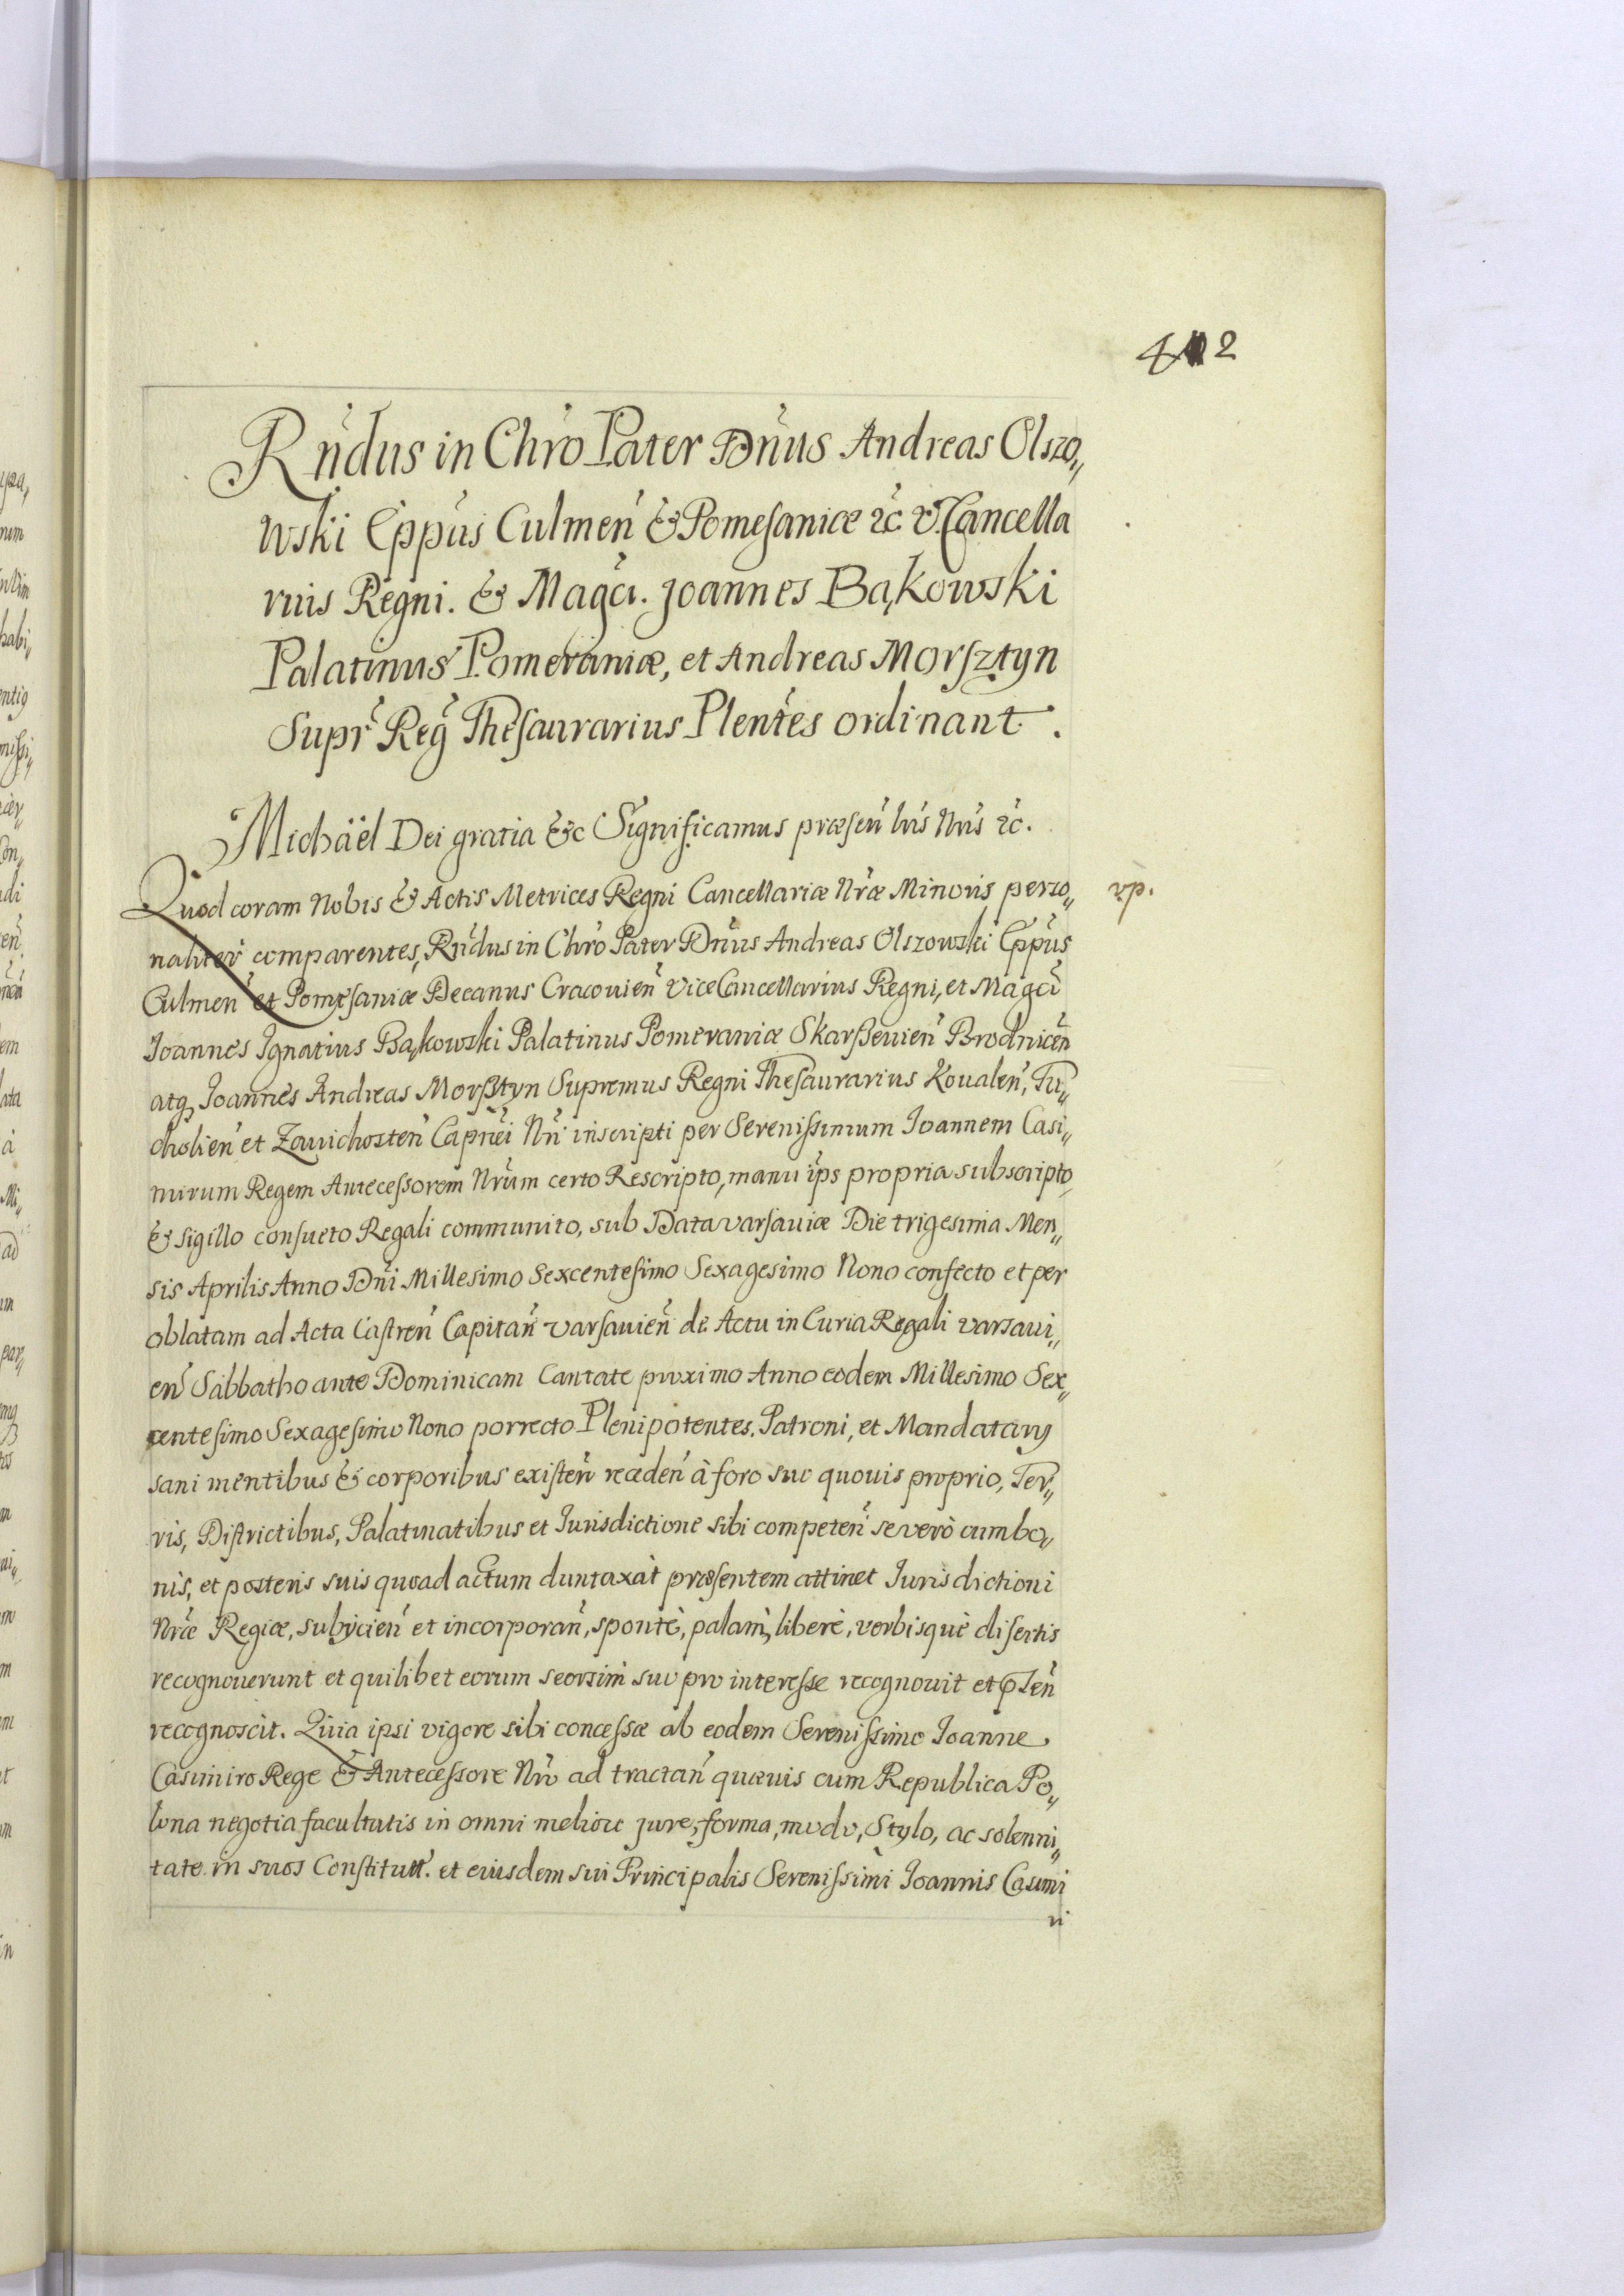 402
Rńdus in Chrō Pater Dn̄us Andreas Olszo„
wski Epp̄us Culmen̄ & Pomesaniæ ꝛc V. Cancella
rius Regni. & Magci. Joannes Bąkowski
Palatinus Pomeraniæ, et Andreas Morsztyn
Supr̄ Reḡ Thesaurarius Plen̄tes ordinant.
Michäel Dei gratia &c Significamus præsen̄ lr̄is Nr̄is ꝛc.
Quod coram Nobis & Actis Metrices Regni Cancellariæ Nr̄æ Minoris perso„
vp.
naliter comparentes, Rńdus in Chrō Pater Dn̄us Andreas Olszowski Epp̄us
Culmen̄ et Pomesaniæ Decanus Cracouien̄ ViceCancellarius Regni, et Magci
Joannes Ignatius Bąkowski Palatinus Pomeraniæ Skarszeuien̄ Brodnicen̄
atq, Joannes Andreas Morsztyn Supremus Regni Thesaurarius Koualen̄, Tu„
cholien̄ et Zawichosten̄ Capn̄ei Nr̄i inscripti per Serenissimum Joannem Casi„
mirum Regem Antecessorem Nr̄um certo Rescripto, manu ip̄s propria subscripto
& sigillo consueto Regali communito, sub Data varsauiæ Die trigesima Men„
sis Aprilis Anno Dn̄i Millesimo Sexcentesimo Sexagesimo Nono confecto et per
oblatam ad Acta Castren̄ Capitan̄ varsauien̄ de Actu in Curia Regali varsaui„
en̄ Sabbatho ante Dominicam Cantate proximo Anno eodem Millesimo Sex„
centesimo Sexagesimo Nono porrecto Plenipotentes. Patroni, et Mandatarij
sani mentibus & corporibus existen̄ receden̄ à foro suo quouis proprio, Ter„
ris, Districtibus, Palatinatibus et Jurisdictione sibi competen̄ se verò cum bo„
nis, et posteris suis quoad actum duntaxàt præsentem attinet Jurisdictioni
Nr̄æ Regiæ, subijcien̄ et incorporan̄, spontè, palam, liberè, verbisquè disertis
recognouerunt et quilibet eorum seorsim suo pro interesse recognouit et p̄sen̄
recognoscit. Quia ipsi vigore sibi concessæ ab eodem Serenissimo Joanne
Casimiro Rege & Antecessore Nr̄o ad tractan̄ quæuis cum Republica Po„
lona negotia facultatis in omni meliori jure, forma, modo, Stylo, ac solenni„
tate in suos Constitutt. et eiusdem sui Principalis Serenissimi Joannis Casimi
ri